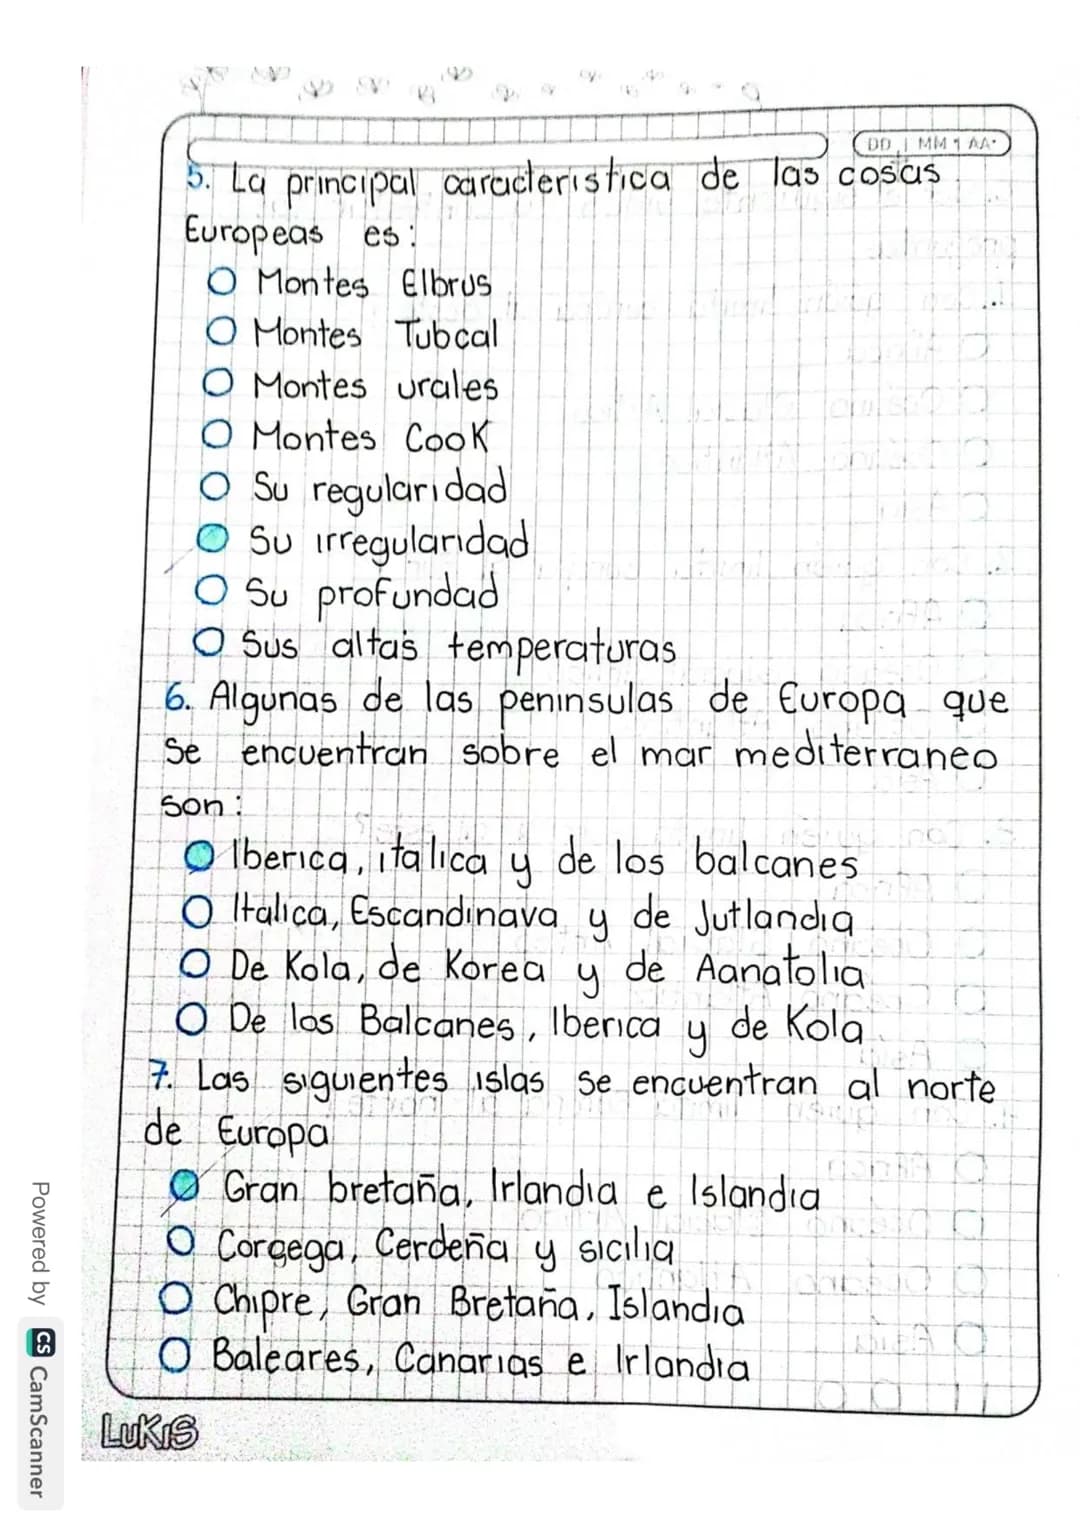 DD | MM | AA
5. La principal caracteristica de las cosas
Europeas es:
Montes Elbrus
Montes Tubcal
Montes urales
Montes Cook
Su regularidad
Su irregularidad
Su profundad
Sus altas temperaturas
6. Algunas de las peninsulas de Europa que
se encuentran sobre el mar mediterraneo
son:
Iberica, italica y de los balcanes
Italica, Escandinava y de Jutlandia
De Kola, de Korea y de Aanatolia
De los Balcanes, Iberica y de Kola
7. Las siguientes islas se encuentran al norte
de Europa
Gran bretaña, Irlandia e Islandia
Corçega, Cerdeña y sicilia
Chipre, Gran Bretaña, Islandia
Baleares, Canarias e Irlandia
LUKIS
Powered by CS CamScanner